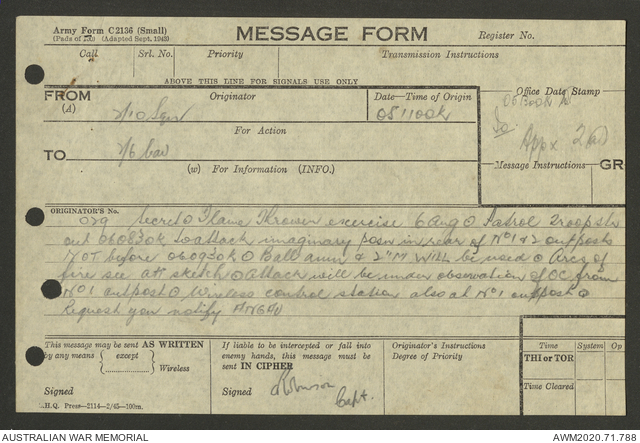 Army Form C2136 (Small)
(Pads of 100) (Adapted Sept. 1942)
MESSAGE FORM
Register No.
Call
Srl. No.
Priority
Transmission Instructions
ABOVE THIS LINE FOR SIGNALS USE ONLY
FROM
(A)
Originator
Date—Time of Origin
Office Date Stamp
2/10 Sqn
051100K
For Action
TO
2/6 Cav
Appx 2
(w) For Information (INFO.)
Message Instructions
GR
ORIGINATOR'S No.
029 Secret ⊙ Flame Thrower exercise 6 Aug ⊙ Patrol 2 troop
out 060830K to attack imaginary posn in rear of No 1 & 2 outposts
NOT before 060930K ⊙ Ball amn & 2"M will be used ⊙ Arcs of
fire see att sketch ⊙ attack will be under observation of OC from
No 1 outpost ⊙ Wireless control station also at No 1 outpost ⊙
Request you notify ANGAU
This message may be sent AS WRITTEN
by any means { except } Wireless
Signed
If liable to be intercepted or fall into
enemy hands, this message must be
sent IN CIPHER
Signed
Capt.
Originator's Instructions
Degree of Priority
Time
System
Op
THI or TOR
Time Cleared
L.H.Q. Press—2114—2/45—100m.
AUSTRALIAN WAR MEMORIAL
AWM2020.71.788